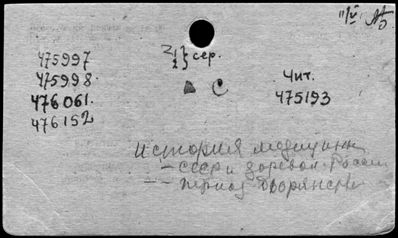 475997
475998.
476061.
476152
2 1/2 } сер.
С
Чит.
475193
История медицины
— СССР и доревол. Россия
— — Период дворянск